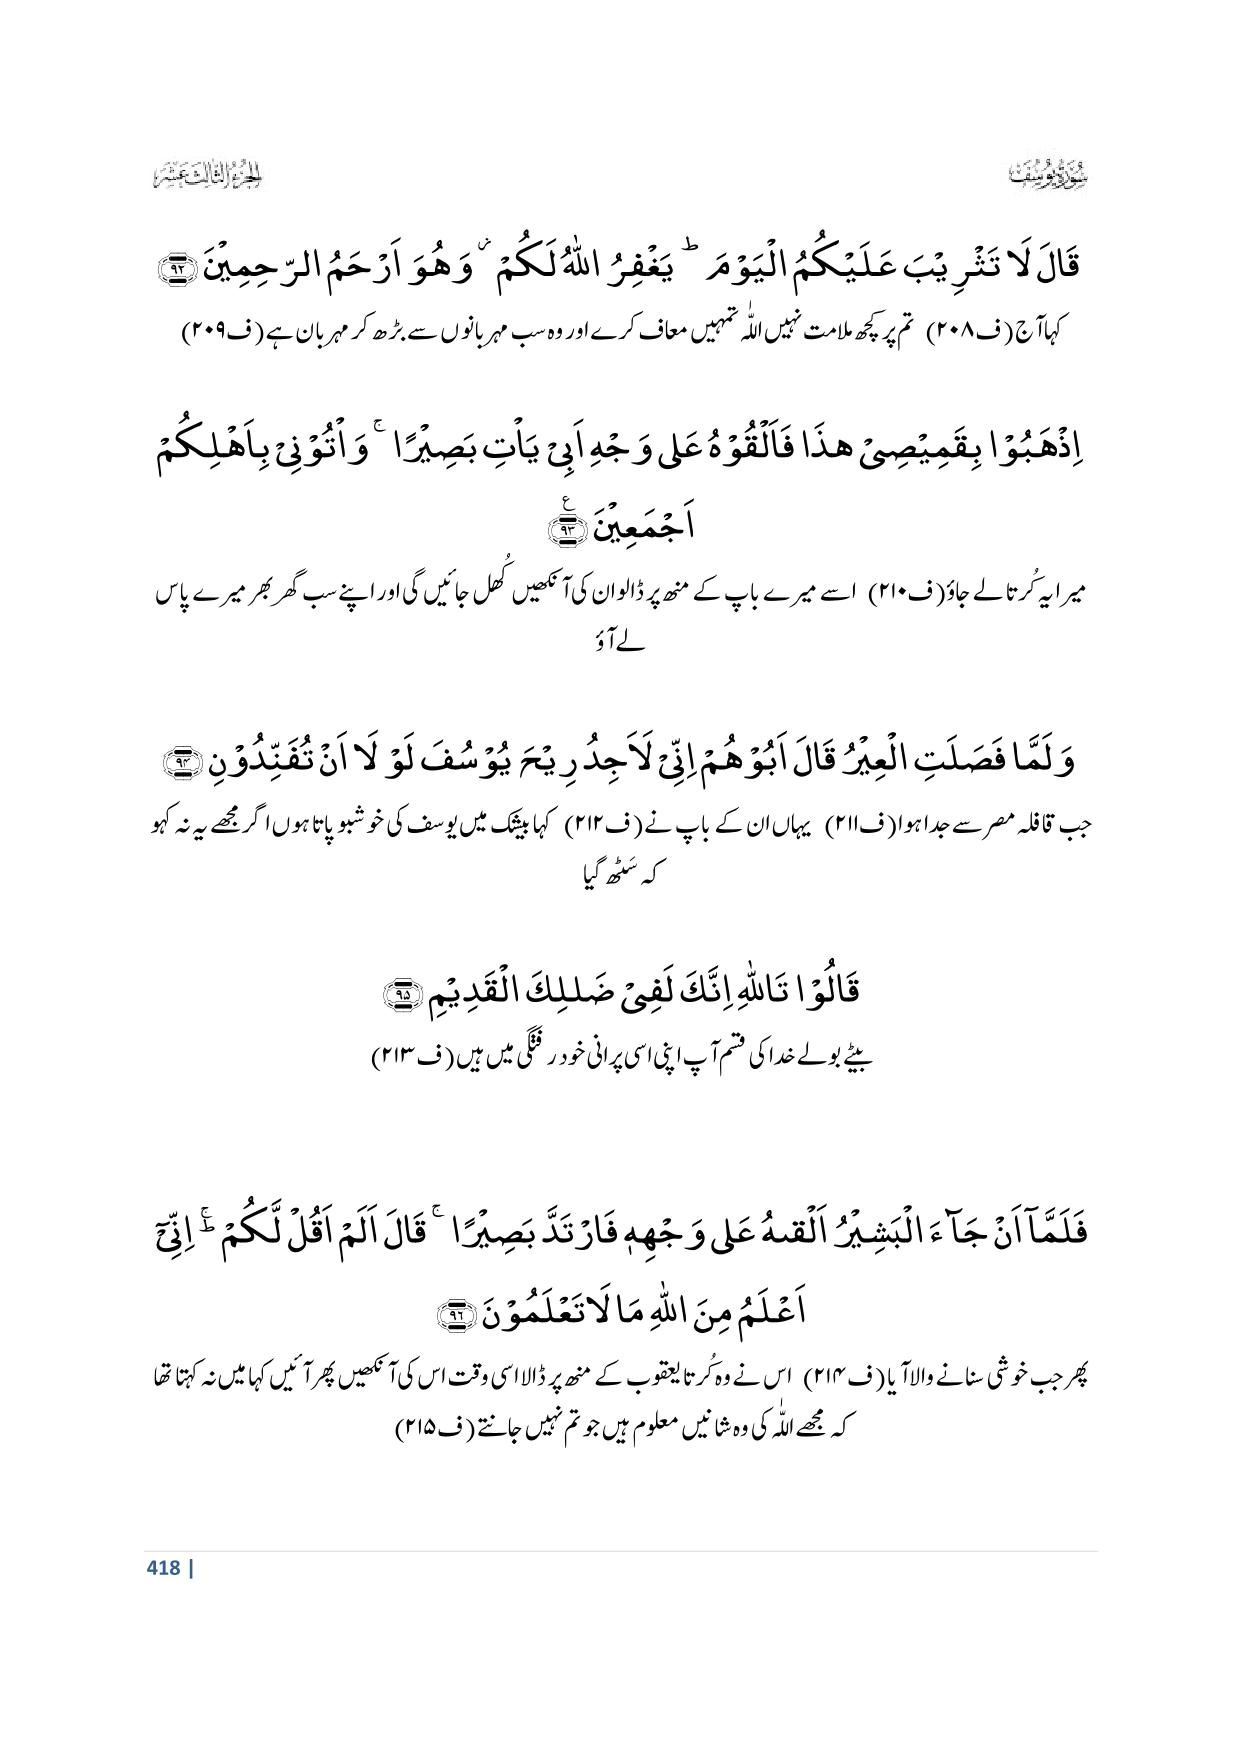 سُوْرَةُ يُوْسُفَ
الجُزءُ الثَّالِث عَشَر
قَالَ لَا تَثْرِيْبَ عَلَيْكُمُ الْيَوْمَ ؕ يَغْفِرُ اللّٰهُ لَكُمْ ۫ وَهُوَ اَرْحَمُ الرّٰحِمِيْنَ ﴿۹۲﴾
کہا آج (ف۲۰۸) تم پر کچھ ملامت نہیں اللّٰہ تمہیں معاف کرے اور وہ سب مہربانوں سے بڑھ کر مہربان ہے (ف۲۰۹)
اِذْهَبُوْا بِقَمِيْصِيْ هٰذَا فَاَلْقُوْهُ عَلٰى وَجْهِ اَبِيْ يَاْتِ بَصِيْرًا ۚ وَاْتُوْنِيْ بِاَهْلِكُمْ
اَجْمَعِيْنَ ﴿۹۳﴾ ع
میرا یہ کُرتا لے جاؤ (ف۲۱۰) اسے میرے باپ کے منھ پر ڈالو ان کی آنکھیں کُھل جائیں گی اور اپنے سب گھر بھر میرے پاس
لے آؤ
وَلَمَّا فَصَلَتِ الْعِيْرُ قَالَ اَبُوْهُمْ اِنِّيْ لَاَجِدُ رِيْحَ يُوْسُفَ لَوْ لَا اَنْ تُفَنِّدُوْنِ ﴿۹۴﴾
جب قافلہ مصر سے جدا ہوا (ف۲۱۱) یہاں ان کے باپ نے (ف۲۱۲) کہا بیشک میں یوسف کی خوشبو پاتا ہوں اگر مجھے یہ نہ کہو
کہ سَٹھ گیا
قَالُوْا تَاللّٰهِ اِنَّكَ لَفِيْ ضَلٰلِكَ الْقَدِيْمِ ﴿۹۵﴾
بیٹے بولے خدا کی قسم آپ اپنی اسی پرانی خود رفتگی میں ہیں (ف۲۱۳)
فَلَمَّاۤ اَنْ جَآءَ الْبَشِيْرُ اَلْقٰىهُ عَلٰى وَجْهِهٖ فَارْتَدَّ بَصِيْرًا ۚ قَالَ اَلَمْ اَقُلْ لَّكُمْ ۚؕ اِنِّيْۤ
اَعْلَمُ مِنَ اللّٰهِ مَا لَا تَعْلَمُوْنَ ﴿۹۶﴾
پھر جب خوشی سنانے والا آیا (ف۲۱۴) اس نے وہ کُرتا یعقوب کے منھ پر ڈالا اسی وقت اس کی آنکھیں پھر آئیں کہا میں نہ کہتا تھا
کہ مجھے اللّٰہ کی وہ شانیں معلوم ہیں جو تم نہیں جانتے (ف۲۱۵)
418 |